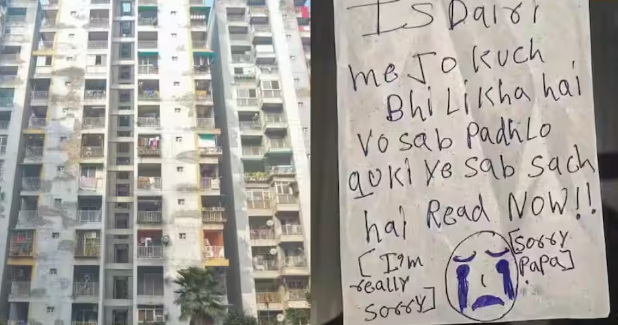 Is Dairi
me Jo kuch
Bhi Likha hai
Vo sab Padhlo
quki ye sab sach
hai Read NOW!!
[I'm
really
sorry]
[Sorry
Papa]